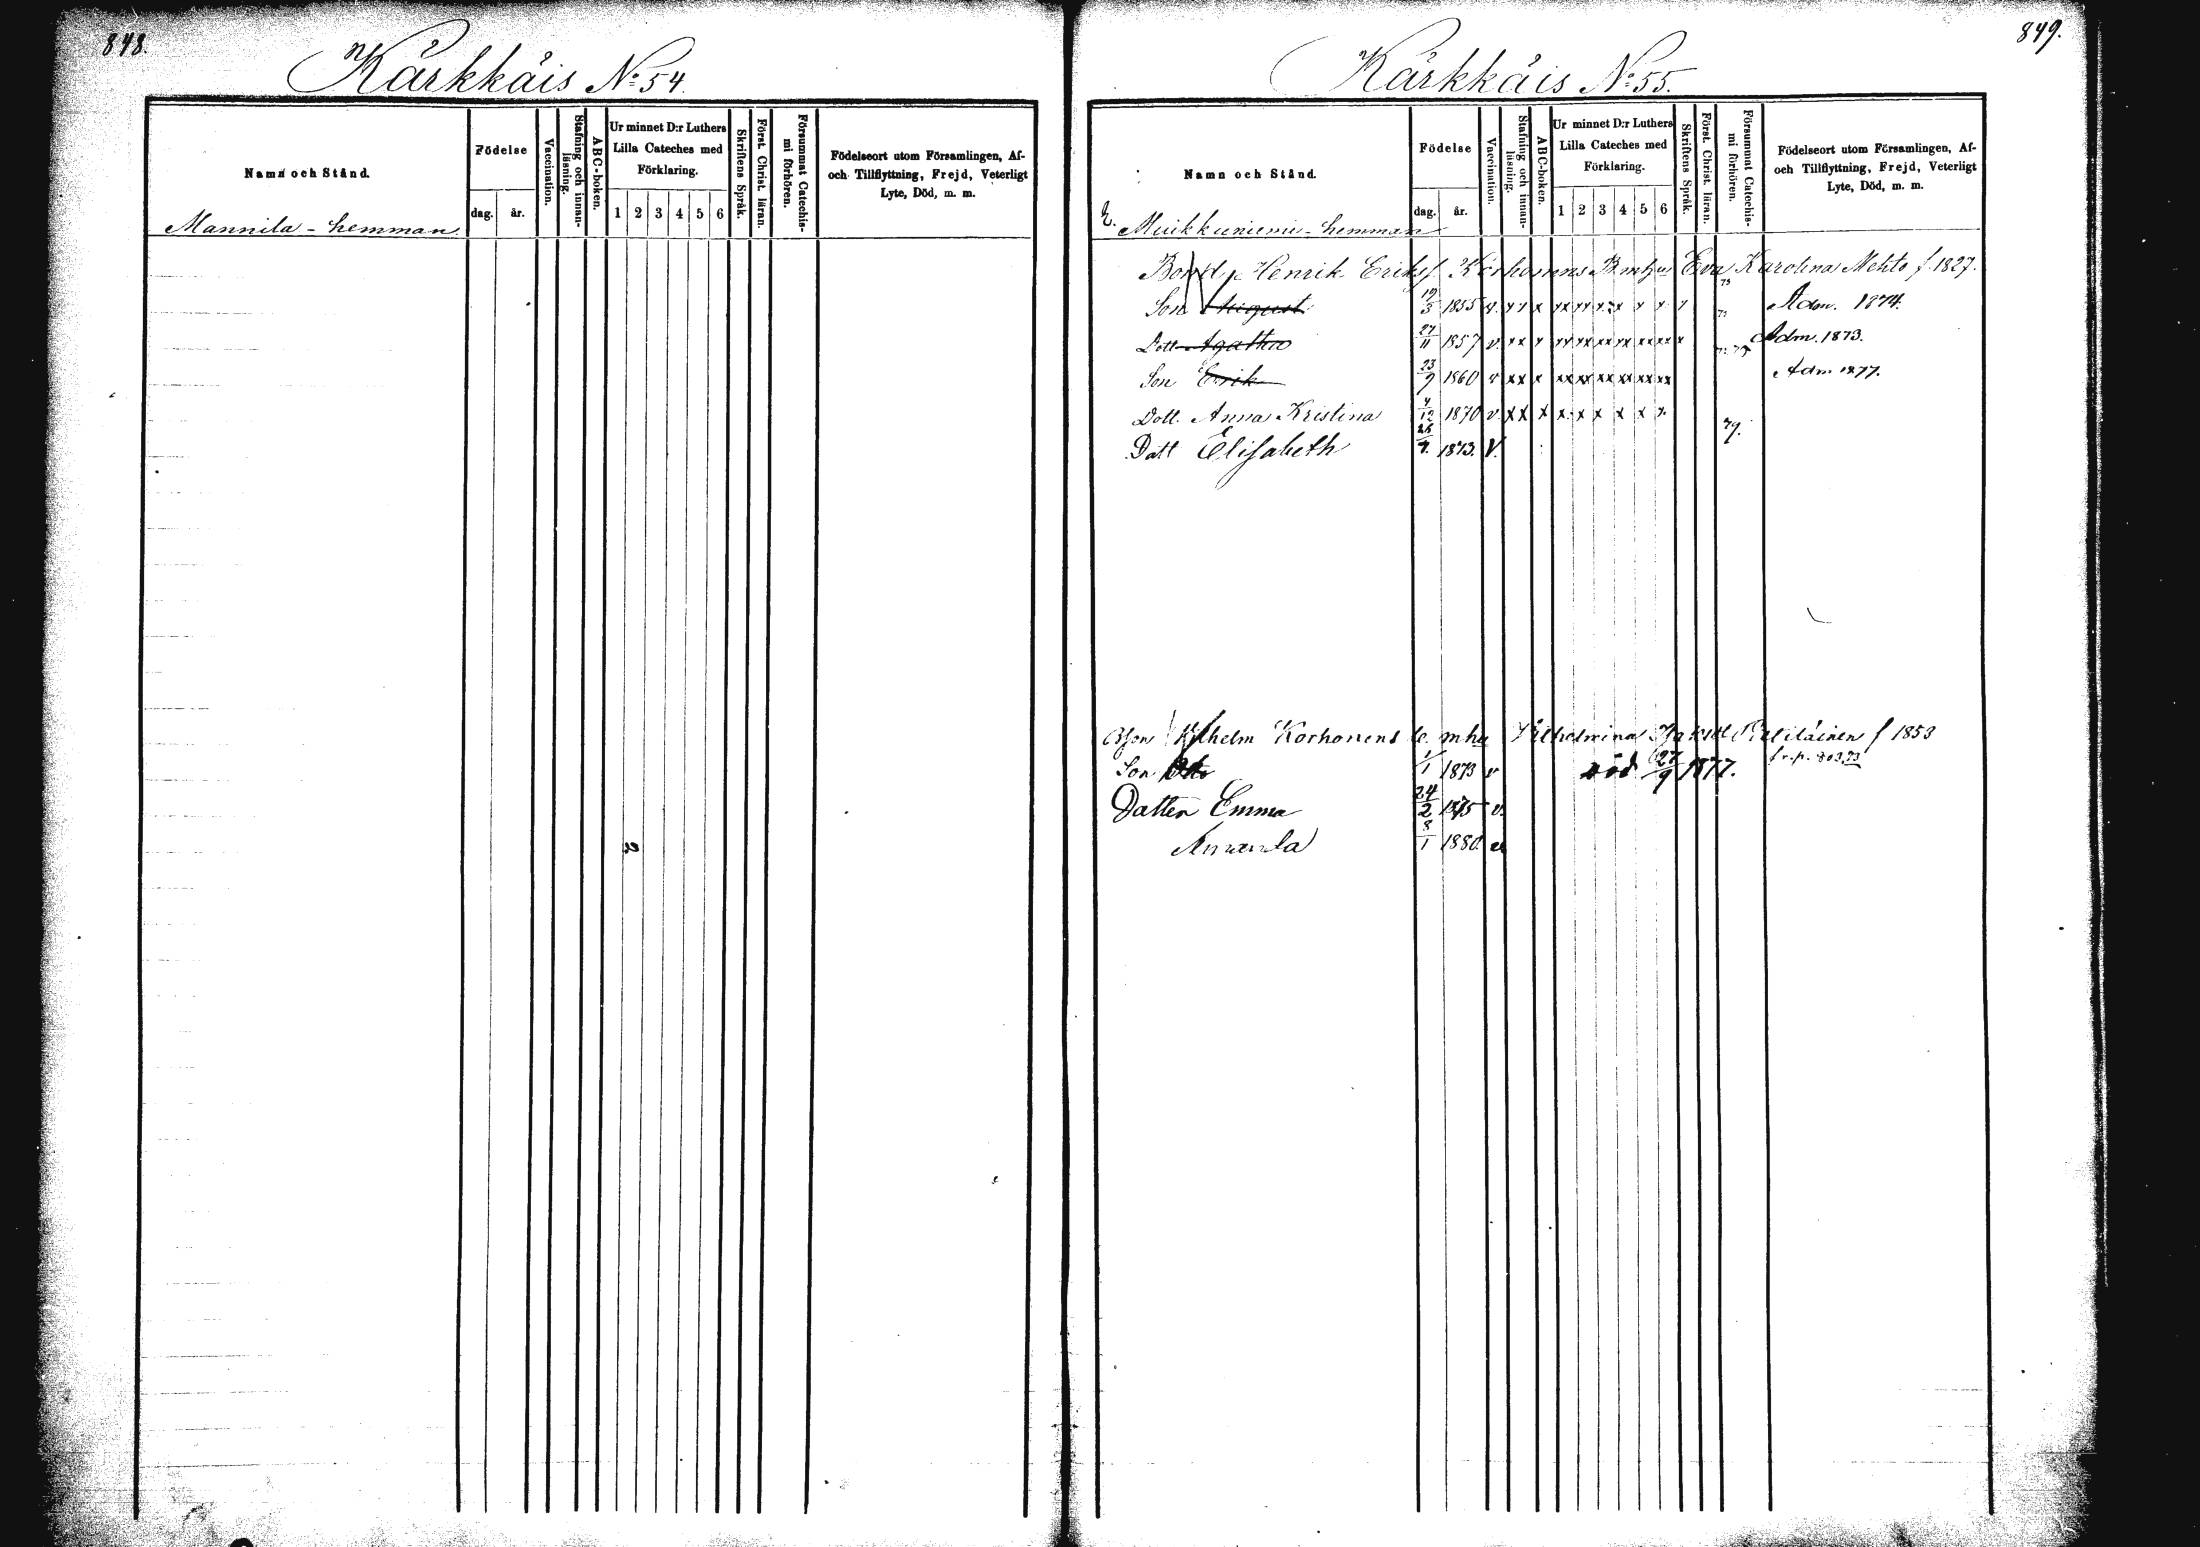 848.
Kärkkäis No 54.
Namn och Stånd.
Födelse
dag.
år.
Vaccination.
Stafning och innan-
läsning.
ABC-boken.
Ur minnet D:r Luthers
Lilla Cateches med
Förklaring.
1 2 3 4 5 6
Skriftens Språk.
Först. Christ. läran.
Försummat Catechis-
mi förhören.
Födelseort utom Församlingen, Af-
och Tillflyttning, Frejd, Veterligt
Lyte, Död, m. m.
Mannila - hemman
849.
Kärkkäis No 55.
Namn och Stånd.
Födelse
dag.
år.
Vaccination.
Stafning och innan-
läsning.
ABC-boken.
Ur minnet D:r Luthers
Lilla Cateches med
Förklaring.
1 2 3 4 5 6
Skriftens Språk.
Först. Christ. läran.
Försummat Catechis-
mi förhören.
Födelseort utom Församlingen, Af-
och Tillflyttning, Frejd, Veterligt
Lyte, Död, m. m.
Muikkuniemi - hemman
Henrik Erikss. Korhonens Eva Karolina Mehto f. 1827.
Son August 19/3 1855 v. xx x xx xx x x x x x Adm. 1874.
Dott. Agatha 27/11 1857 v. xx x xx xx xx xx xx xx x Adm. 1873.
Son Erik 23/9 1860 v xx x xx xx xx xx xx xx Adm 1877.
Dott. Anna Kristina 4/12 1870 v. xx x x x x x x x
Dott Elisabeth 1873. V. 79.
Bson Wilhelm Korhonens mhu Vilhelmina f 1853
Son Otto 1/1 1873 v död 27/9 1877. f r. p. 803.73
Datter Emma 24/2 1875 v.
Amanda 8/1 1880.